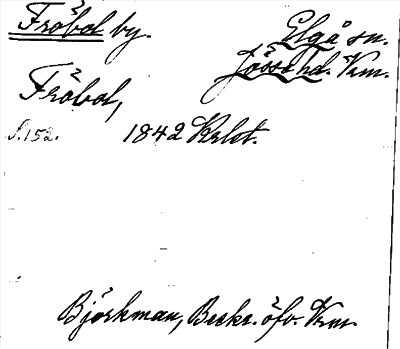 Fröbol by. Elgå sn.
Jösse hd. Vrm.
Fröbol,
s. 152. 1842 Krlst.
Björkman, Beskr. öfv. Vrm.